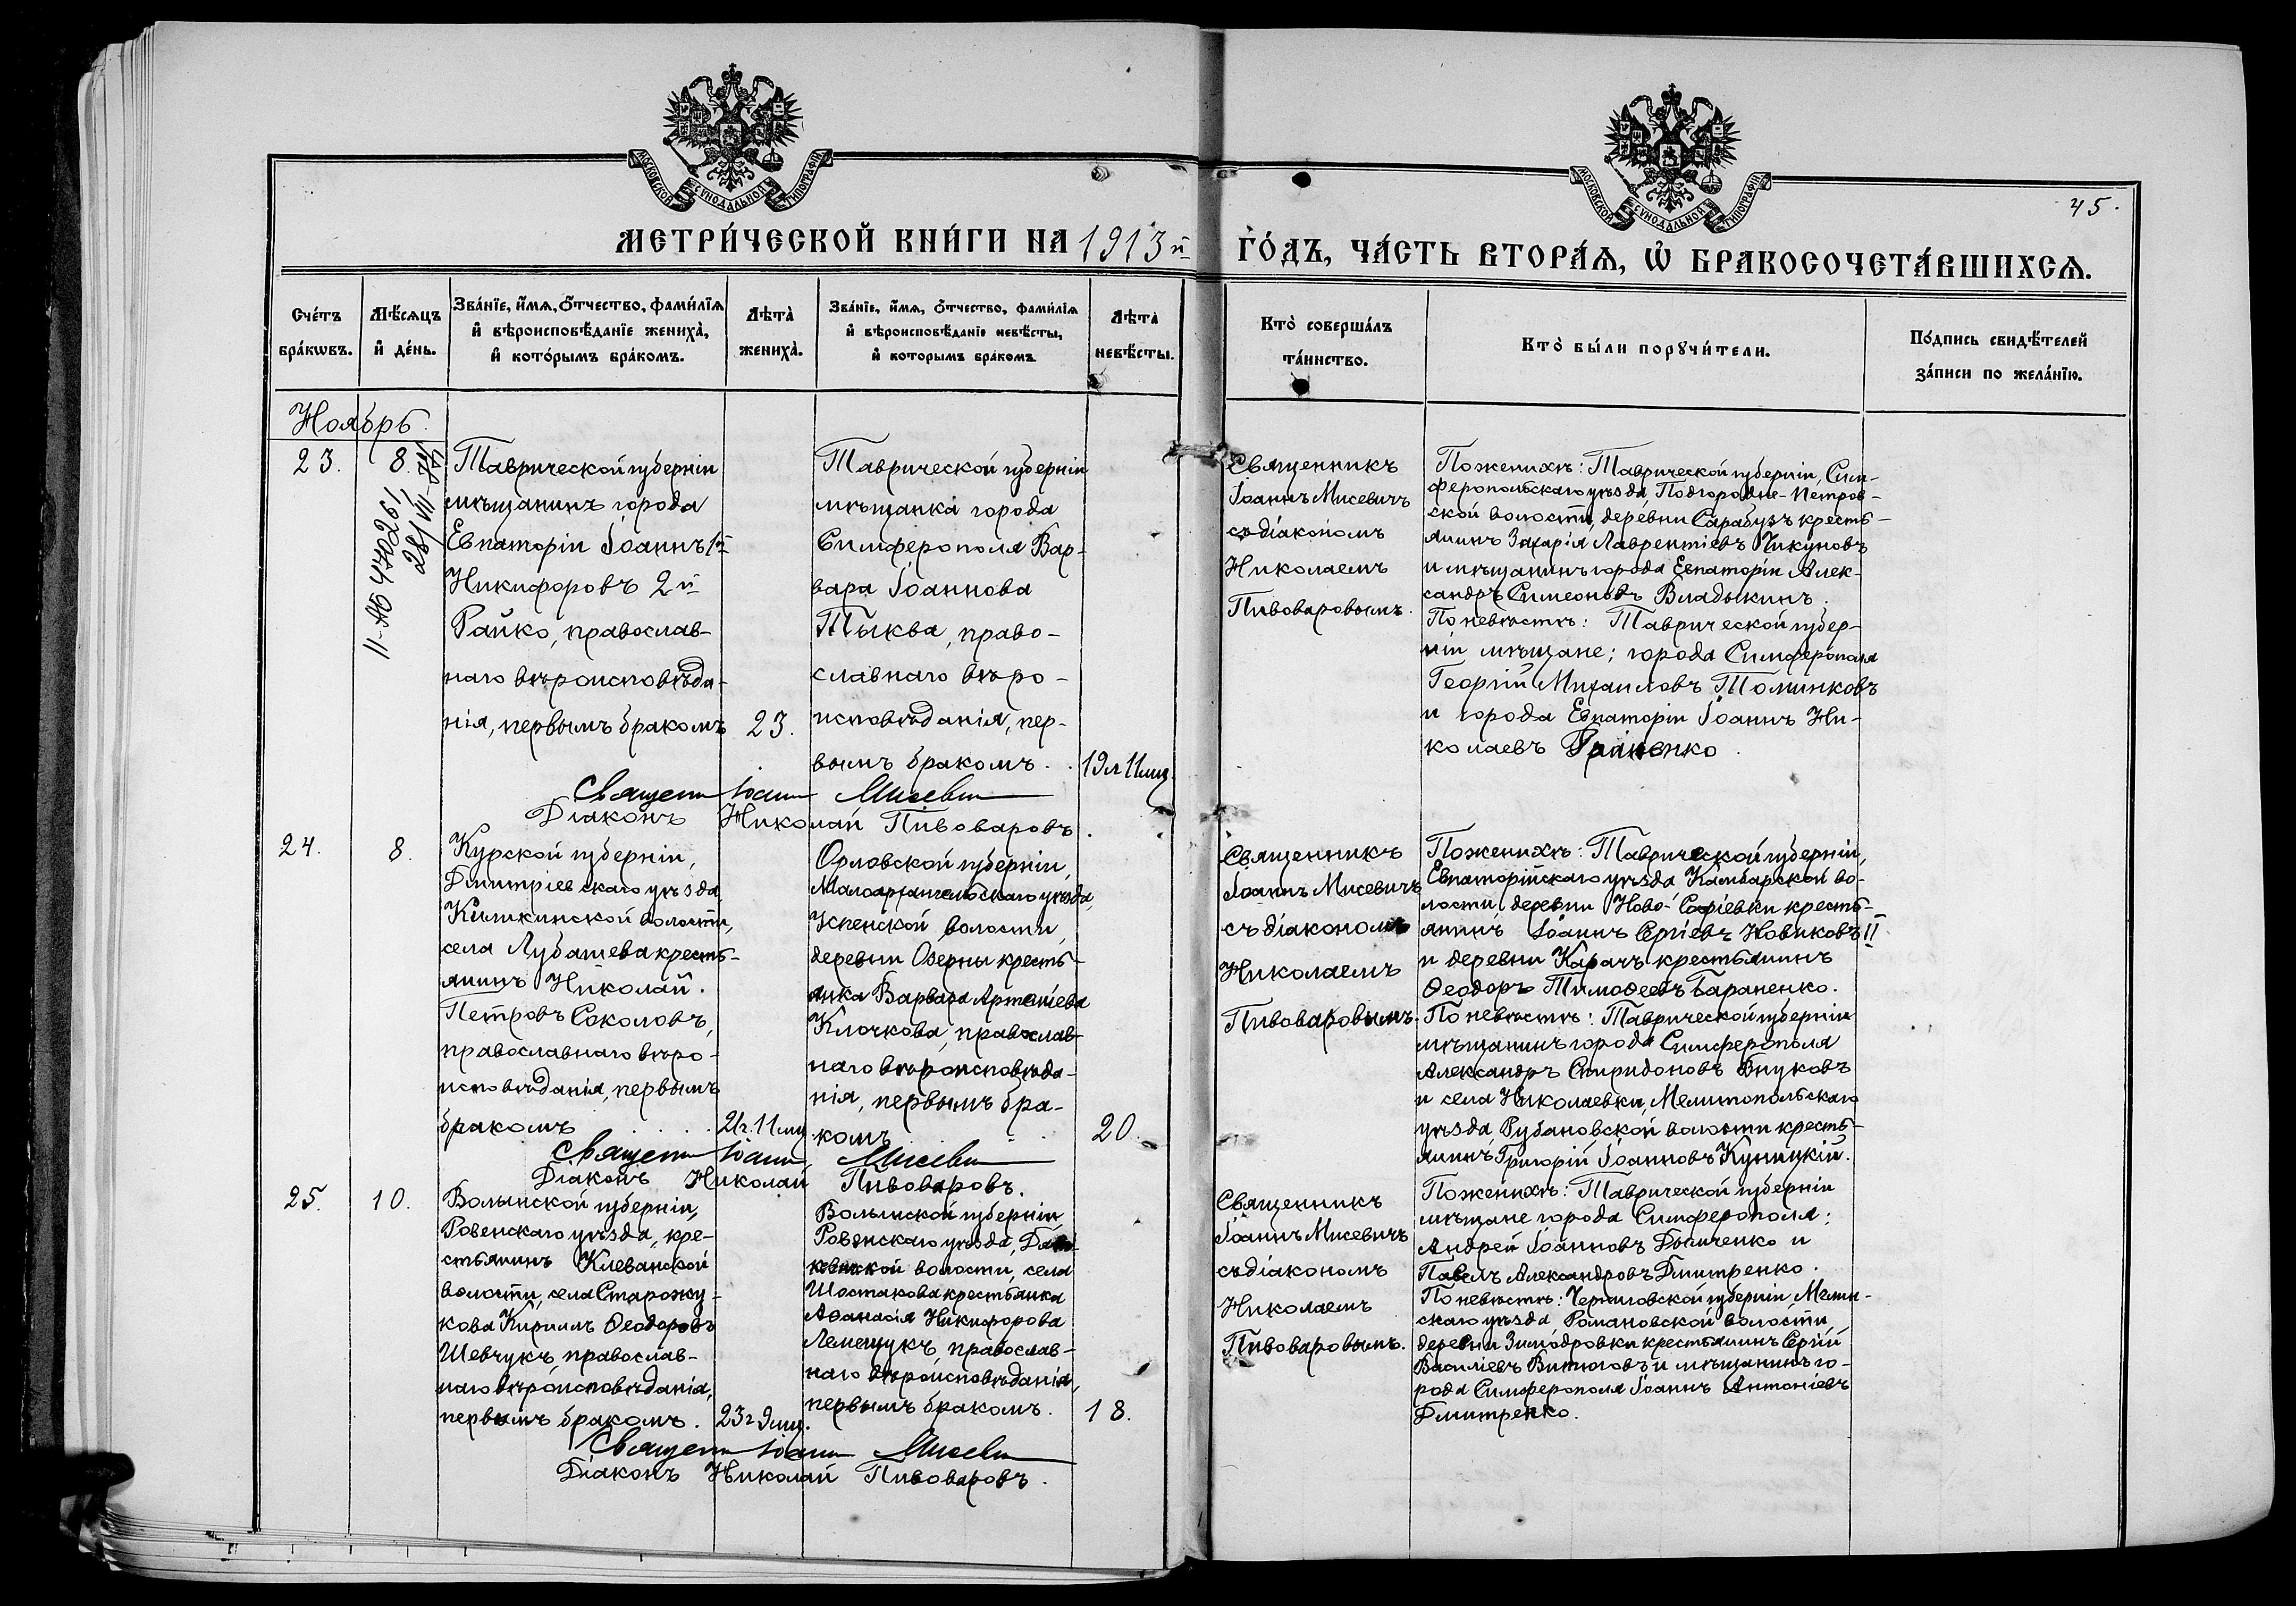 МОСКОВСКОЙ СѴНОДАЛЬНОЙ ТИПОГРАФІИ
МОСКОВСКОЙ СѴНОДАЛЬНОЙ ТИПОГРАФІИ
45.
МЕТРИ́ЧЕСКОЙ КНИ́ГИ НА 1913й
ГО́ДЪ, ЧА́СТЬ ВТОРА́Ѧ, Ѡ҆ БРАКОСОЧЕТА́ВШИХСѦ.
Сче́тъ
бра́кѡвъ.
Мѣ́сѧцъ
и҆ де́нь.
Зва́нїе, и҆́мѧ, Ѻ҆́тчество, фами́лїѧ
и҆ вѣроисповѣ́данїе жениха̀,
и҆ кото́рымъ бра́комъ.
Лѣта̀
жениха̀.
Зва́нїе, и҆́мѧ, ѻ҆́тчество, фами́лїѧ
и҆ вѣроисповѣ́данїе невѣ́сты,
и҆ которымъ бра́комъ
Лѣта̀
невѣ́сты.
Кто̀ соверша́лъ
та́инство.
Кто̀ бы́ли порꙋчи́тели.
По́дпись свидѣ́телей
за́писи по жела́нїю.
Ноябрь.
23.
8.
Таврической губерніи
мѣщанинъ города
Евпаторіи Іоаннъ 1й
Никифоровъ 2й
Райко, православ-
наго вѣроисповѣда-
нія, первымъ бракомъ
23.
Таврической губерніи
мѣщанка города
Симферополя Вар-
вара Іоаннова
Тыква, право-
славнаго вѣро-
исповѣданія, пер-
вымъ бракомъ.
19л 11мц.
Священникъ
Іоаннъ Мисевичъ
съ діакономъ
Николаемъ
Пивоваровымъ.
По женихѣ: Таврической губерніи, Сим-
феропольскаго уѣзда, Подгородне-Петров-
ской волости, деревни Сарабузъ кресть-
янинъ Захарія Лаврентіевъ Пикуновъ
и мѣщанинъ города Евпаторіи Алек-
сандръ Симеоновъ Владыкинъ.
По невѣстѣ: Таврической губер-
ніи мѣщане; города Симферополя
Георгій Михаиловъ Толинковъ
и города Евпаторіи Іоаннъ Ни-
колаевъ
Священ Іоанн Мисевич
Діаконъ Николай Пивоваровъ.
24.
8.
Курской губерніи,
Дмитріевскаго уѣзда,
волости,
села Лубашева кресть-
янинъ Николай
Петровъ Соколовъ,
православнаго вѣро-
исповѣданія, первымъ
бракомъ
21г. 11мц.
Орловской губерніи,
Малоархангельскаго уѣзда,
Успенской волости,
деревни Озерны кресть-
янка Варвара
Клочкова, православ-
наго вѣроисповѣда-
нія, первымъ бра-
комъ
20.
Священникъ
Іоаннъ Мисевичъ
съ діакономъ
Николаемъ
Пивоваровымъ.
По женихѣ: Таврической губерніи,
Евпаторійскаго уѣзда Камбарской во-
лости, деревни Ново-Софіевки кресть-
янинъ Іоаннъ Сергіевъ Новиковъ II
и деревни Карачъ крестьянинъ
Ѳеодоръ Тимоѳеевъ Бараненко.
По невѣстѣ: Таврической губерніи
мѣщанинъ города Симферополя
Александръ Спиридоновъ Внуковъ
и села Николаевки, Мелитопольскаго
уѣзда, Рубановской волости кресть-
янинъ Григорій Іоанновъ Куницкій.
Священ Іоанн Мисевич
Діаконъ Николай Пивоваровъ.
25.
10.
Волынской губерніи,
Ровенскаго уѣзда, кре-
стьянинъ Клеванской
волости, села Старожу-
кова Кириллъ Ѳеодоровъ
Шевчукъ, православ-
наго вѣроисповѣданія,
первымъ бракомъ.
23г 9мц.
Волынской губерніи
Ровенскаго уѣзда,
волости, села
Шостакова крестьянка
Аѳанасія Никифорова
Лемещукъ, православ-
наго вѣроисповѣданія,
первымъ бракомъ.
18.
Священникъ
Іоаннъ Мисевичъ
съ діакономъ
Николаемъ
Пивоваровымъ.
По женихѣ: Таврической губерніи
мѣщане города Симферополя:
Андрей Іоанновъ и
Павелъ Александровъ Дмитренко.
По невѣстѣ: Черниговской губерніи, Мглин-
скаго уѣзда, Романовской волости,
деревни Зимодровки крестьянинъ Сергій
Василіевъ Витюговъ и мѣщанинъ го-
рода Симферополя Іоаннъ Антоніевъ
Дмитренко.
Священ Іоанн Мисевич
Діаконъ Николай Пивоваровъ.